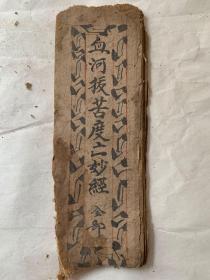 血河拔苦度亡妙經全部